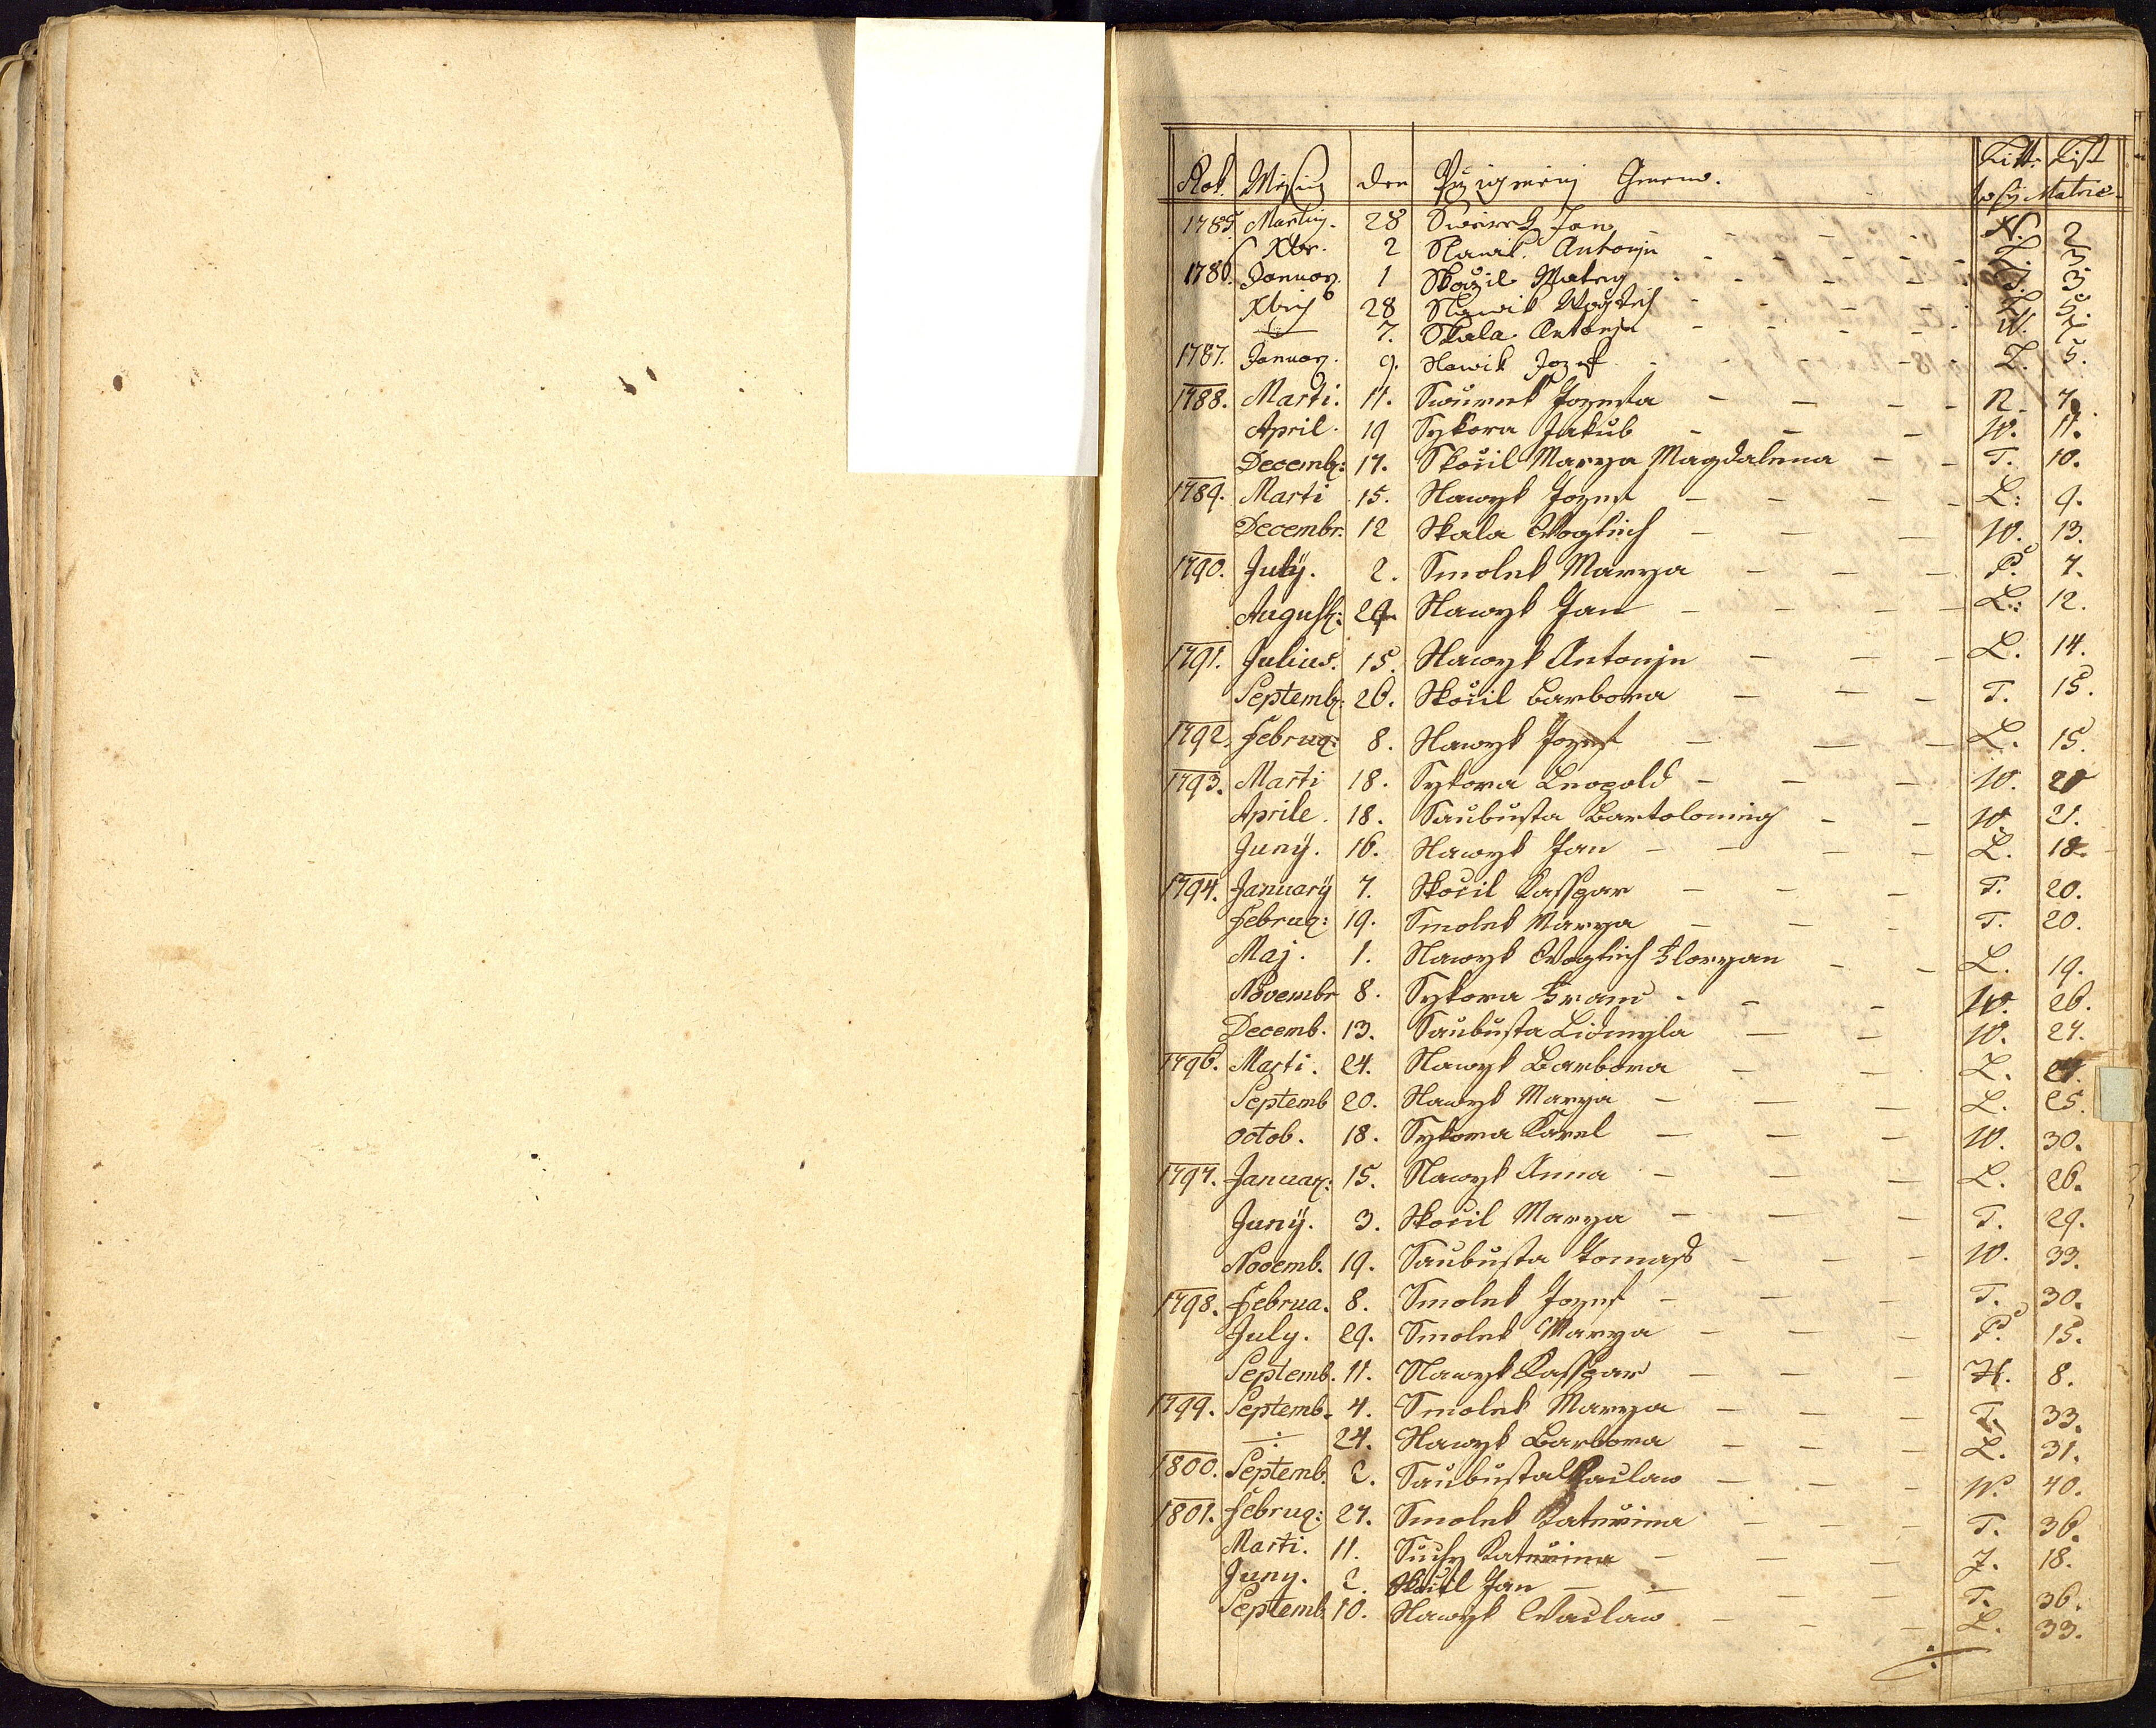 Rok. Mesyc den Przigmenj Gmeno. Litt: List
Matric
1785 Martij. 28 Jan N. 2
Xbr. 2 Slawik Antonjn L. 3
1786. Januar. 1 Skoczil Matieg T. 3
Xbris 28 Slawik Wogtich L. 5.
7. Skala Antonjn W. 7
1787. Januar. 9. Slawik Jozef L. 5.
1788. Marti. 11. Jozeffa N. 7.
April. 19 Sykora Jakub W. 11.
Decemb: 17. Skočil Marya Magdalena T. 10.
1789. Marti 15. Slawyk Jozef L: 9.
Decembr. 12 Skala Wogtiech W. 13.
1790. July. 2. Smolek Marya P. 7.
August: 29 Slawyk Jan L: 12.
1791. Julius. 15. Slawyk Antonjn L. 14.
Septemb: 26. Skočil Barbora T. 15.
1792. Februar: 8. Slawyk Jozef L. 15.
1793. Marti 18. Sykora Leopold W. 21
Aprile. 18. Saubusta Bartolomieg W. 21.
Juny. 16. Slawyk Jan L. 18.
1794. January 7. Skočil Kasspar T. 20.
Februar: 19. Smolek Marya T. 20.
Maj. 1. Slawyk Wogtiech Floryan L. 19.
Novembr 8. Sykora Franc W. 26.
Decemb. 13. Saubusta Lidmyla W. 27.
1796. Marti. 24. Slawyk Barbora L.
Septemb 20. Slawyk Marya L. 25.
Octob. 18. Sykora Karel W. 30.
1797. Januar: 15. Slawyk Anna L. 26.
Juny. 3. Skočil Marya T. 29.
Novemb. 19. Saubusta Tomass W. 33.
1798. Februa. 8. Smolek Jozef T. 30.
July. 29. Smolek Marya P. 15.
Septemb. 11. Slawyk Kasspar H. 8.
1799. Septemb. 4. Smolek Marya T. 33.
24. Slawyk Barbora L. 31.
1800. Septemb. 2. Saubusta Waclaw W. 40.
1801. Februar: 27. Smolek Kateřina T. 36.
Marti. 11. Suchy Kateřina J. 18.
Juny. 2. Skočil Jan T. 36.
Septemb. 10. Slawyk Waclaw L. 33.